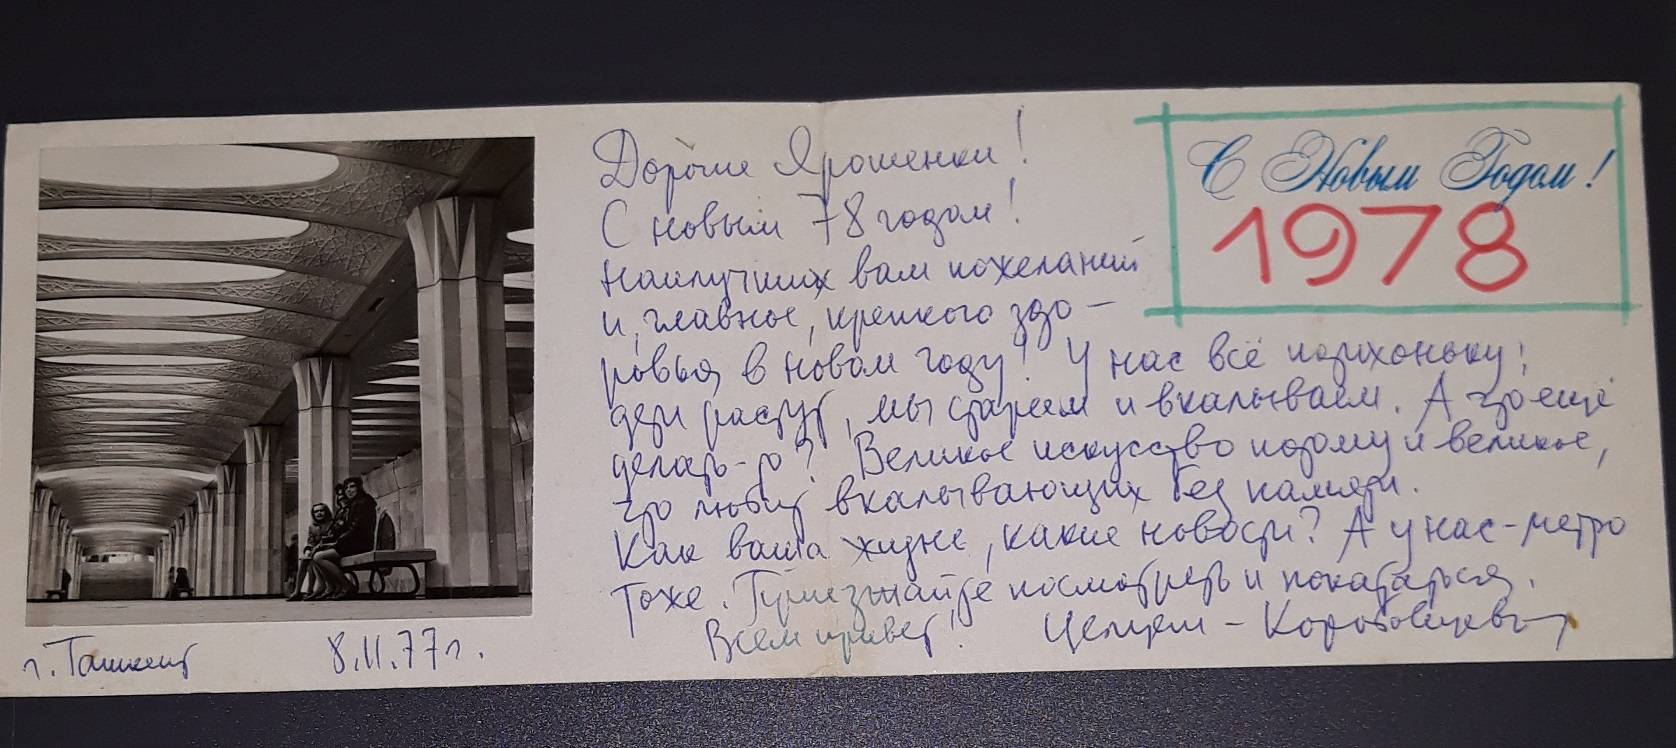 Дорогие Ярошенки!
С новым 78 годом!
Наилучших вам пожеланий
и, главное, крепкого здо-
ровья в новом году! У нас всё потихоньку;
дети растут, мы стареем и вкалываем. А что ещё
делать-то? Великое искусство потому и великое,
что любит вкалывающих без памяти.
Как ваша жизнь, какие новости? А у нас - метро
тоже. Приезжайте посмотреть и покататься.
Всем привет! Целуем - Коробовцевы
С Новым Годом!
1978
г. Ташкент 8.11.77 г.